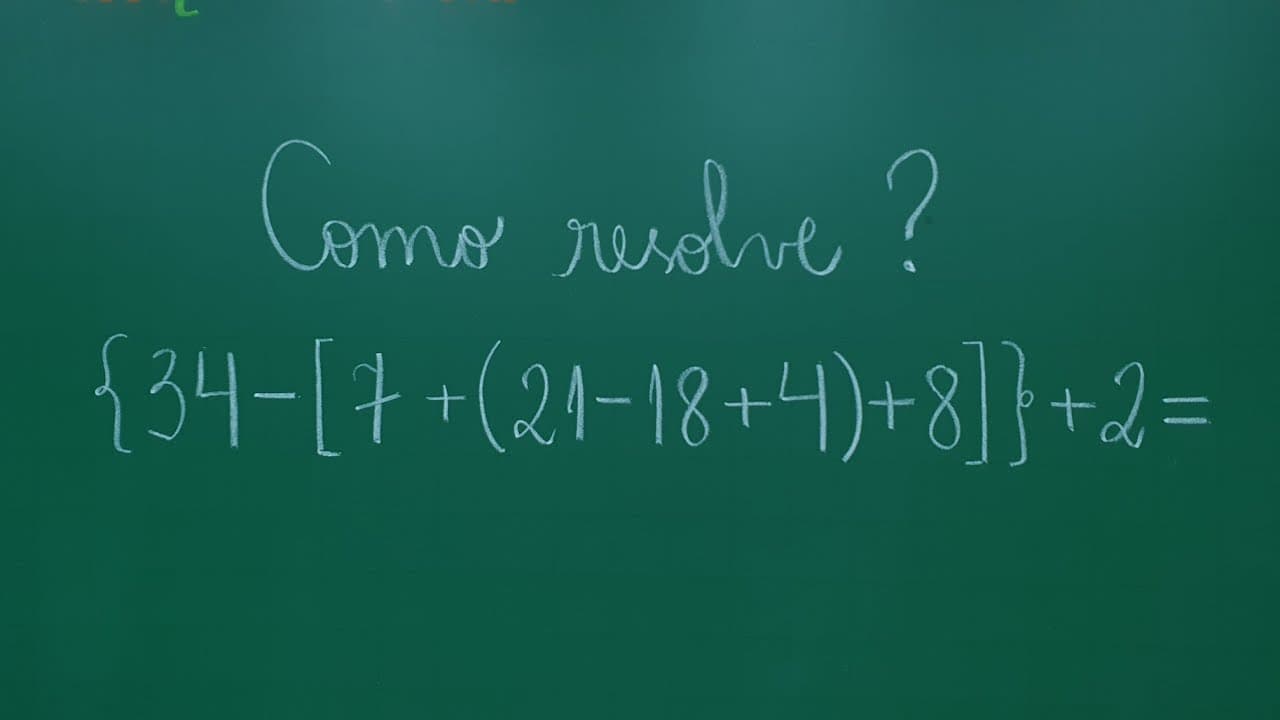 Como resolve ?
{34-[7+(21-18+4)+8]}+2=